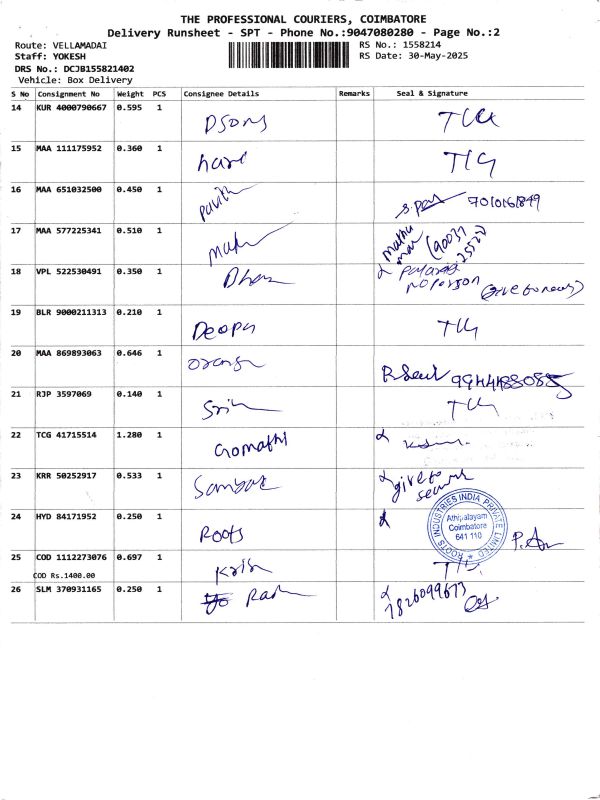 THE PROFESSIONAL COURIERS, COIMBATORE
Delivery Runsheet - SPT - Phone No.:9047080280 - Page No.:2
Route: VELLAMADAI
Staff: YOKESH
DRS No.: DCJB155821402
Vehicle: Box Delivery
RS No.: 1558214
RS Date: 30-May-2025
S No Consignment No Weight PCS Consignee Details Remarks Seal & Signature
14 KUR 4000790667 0.595 1
15 MAA 111175952 0.360 1 hari
16 MAA 651032500 0.450 1 7010161849
17 MAA 577225341 0.510 1
18 VPL 522530491 0.350 1 no person
19 BLR 9000211313 0.210 1 Deepa
20 MAA 869893063 0.646 1
21 RJP 3597069 0.140 1
22 TCG 41715514 1.280 1 Gomathi
23 KRR 50252917 0.533 1 give to
24 HYD 84171952 0.250 1 Roots
ROOTS INDUSTRIES INDIA PRIVATE LIMITED
Athipalayam
Coimbatore
641 110
25 COD 1112273076 0.697 1
COD Rs.1400.00
26 SLM 370931165 0.250 1 7826099673